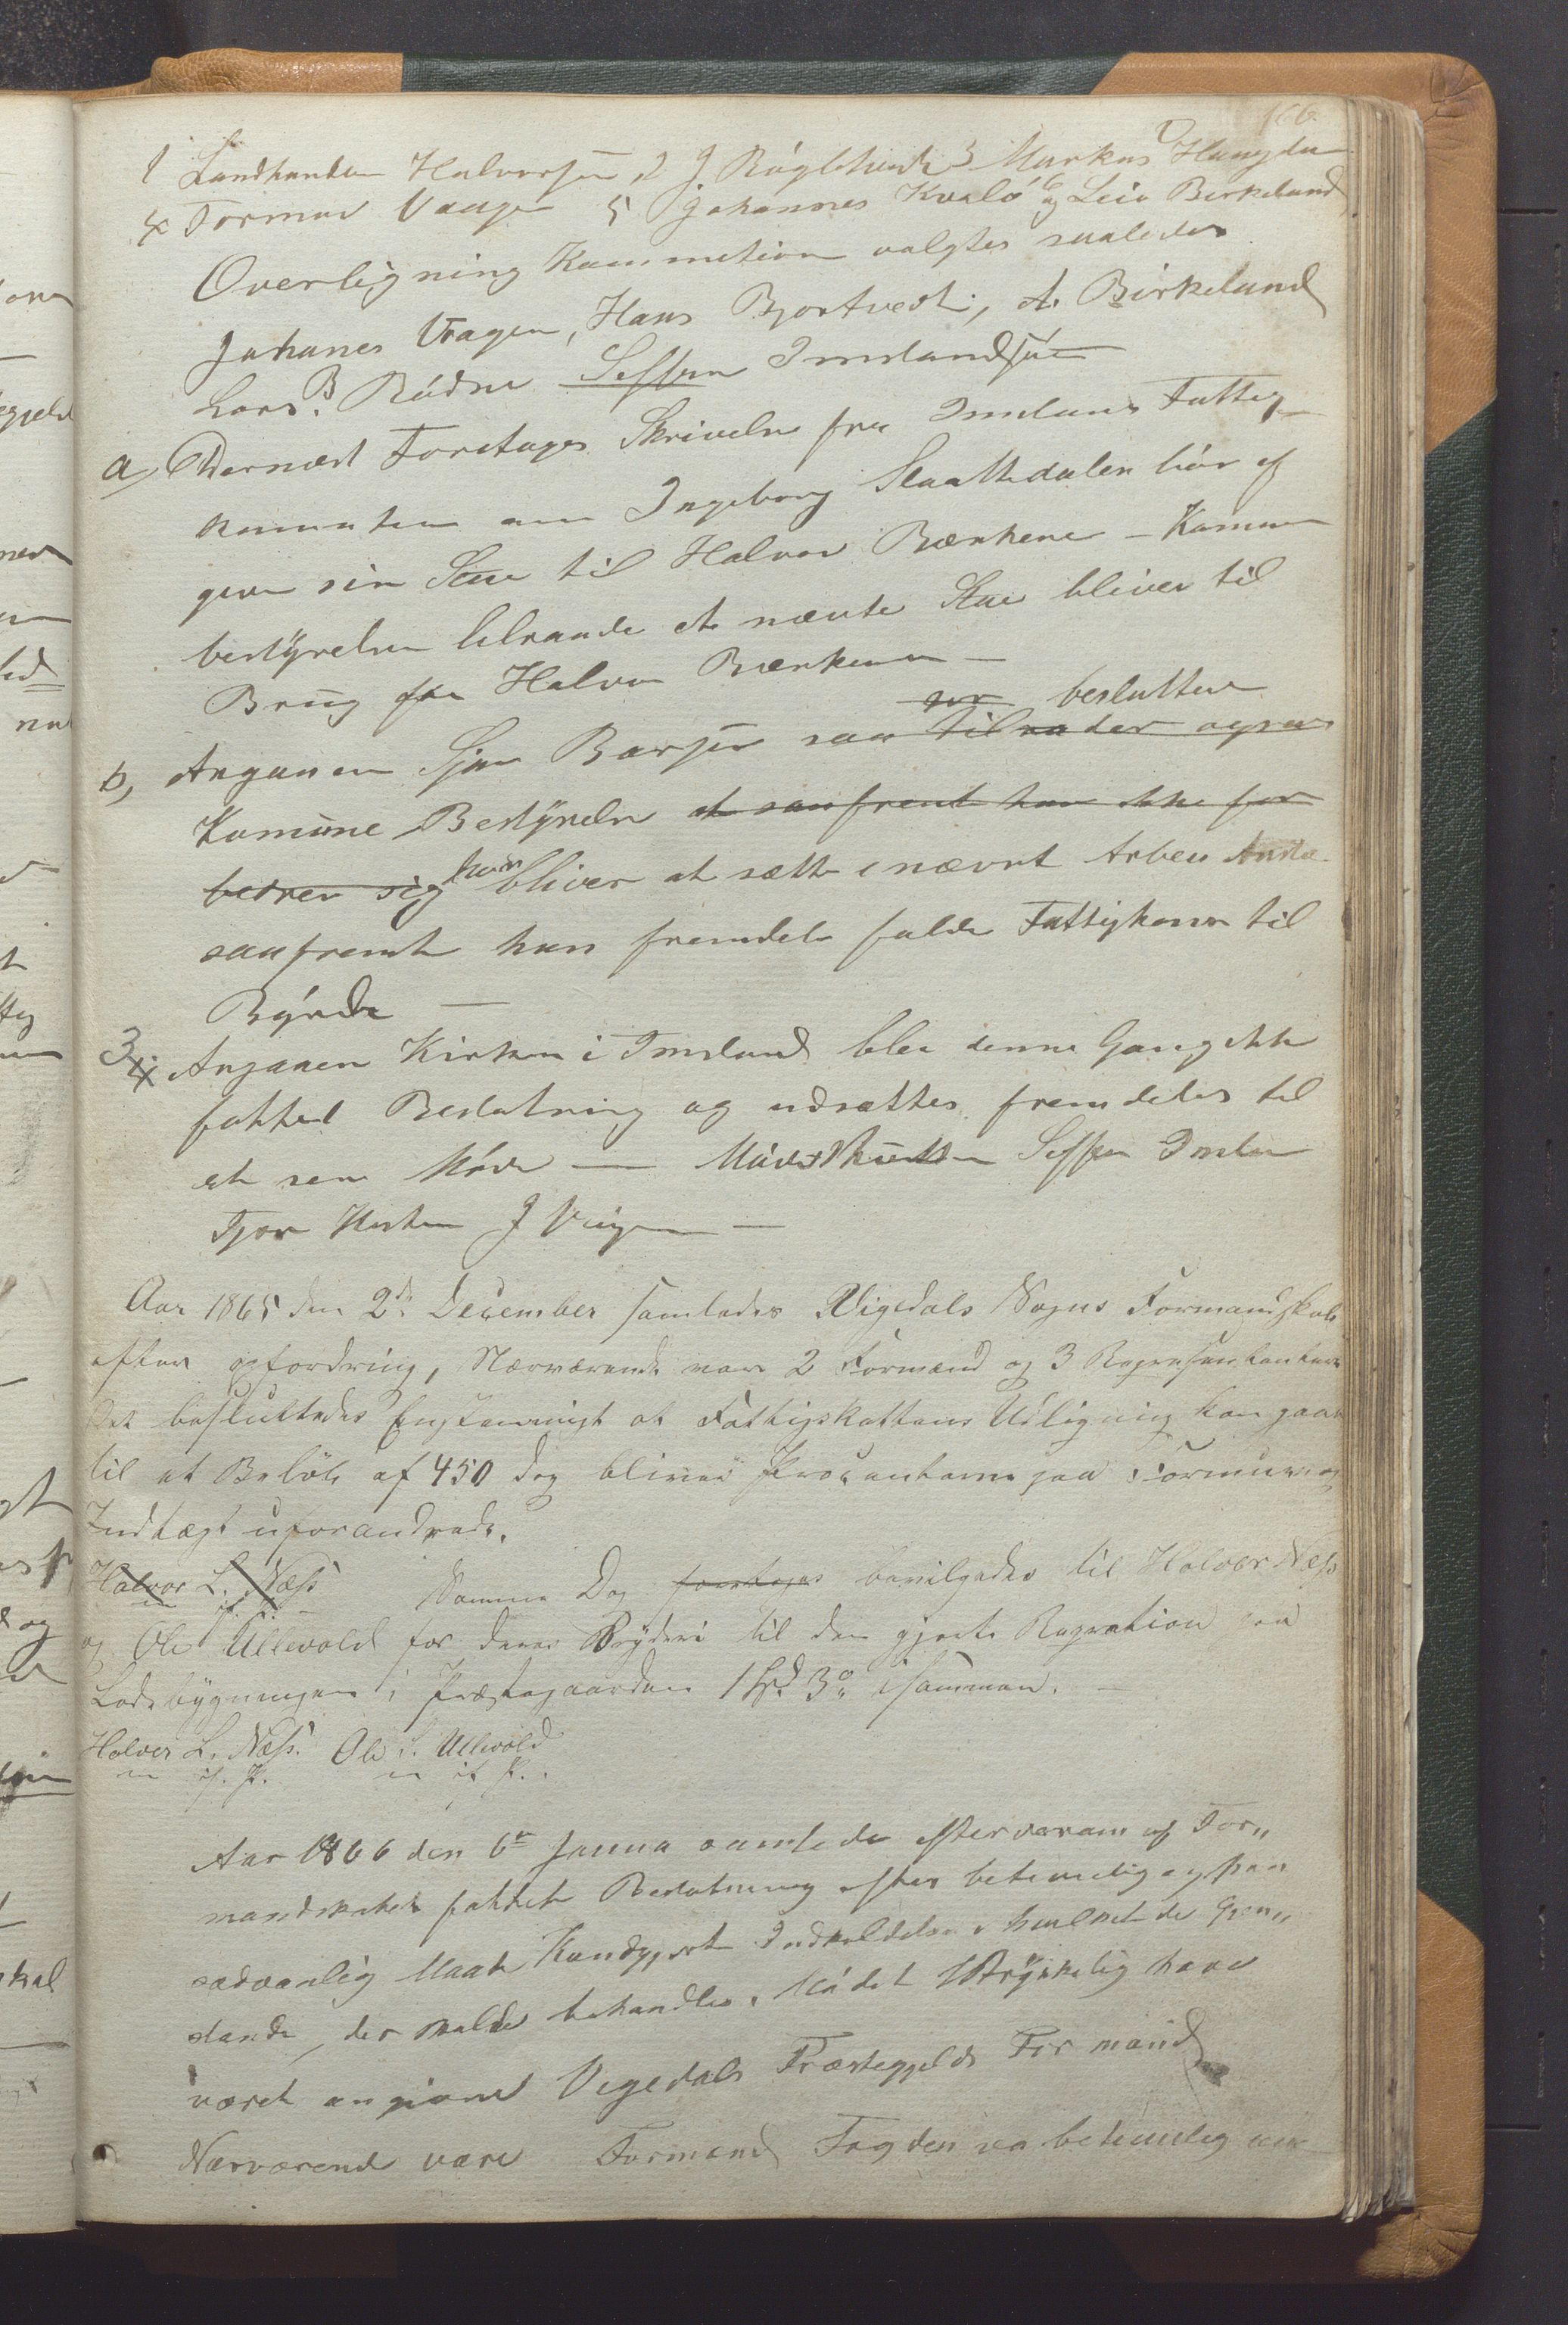 166.
1 Landhandler Halvorsen, 2 J. Röglehiede 3 Markus Haugda
4 Formand Vaage 5 Johannes Kvalö 6 og Leie Berkeland
Overligning Kommetion valgtes saaledes
Johanes Vragen, Hans Bjortvedt, A. Birkeland
Lars. B Rödne Seffen Imslandsjöen
a, Dernæst Foretages Skrivelse fra Imslans Fattig
komuten om Ingeborg Slaattedalen bör af
give sin Stue til Halvor Bærkene – Kommun
bestyrelsen tilraade at nævte Stue bliver til
Brug for Halvor Bærkenes –
b, Angaaen Sjur Barsen saa tilrader ogsaa
gor beslutter
Komune Bestyrelse at saafremt han ikke for
bedrer sig han bliver at sætte i nævnt Arbeis Ansta
saafremt han fremdeles falde Fattigkasse til
Byrde –
3 4. Angaaen Kirken i Imsland blev denne Gang ikke
fattet Beslutning og udsættes fremdeles til
et sen Möde — Mödet Sluttet Seffen Imsla
Tjor Hesten J Vaagen —
Aar 1865 den 2de December samledes Vigedals Sogns Formandskab
efter opfordring, Nærværende vare 2 Formænd og 3 Represententere
Det besluttedes Enstemmigt at Fattigskattens Udligning kan gaae
til et Belöb af 450 dog bliver Procenterne paa Formue og
Indtægt uforandrede.
Halvor L. Næss Samme Dag foretoges bevilgedes til Halvor Næss
m if. P.
og Ole Ullevold for deres Bryderi til den gjorte Repration ved
Ladebygningen i Præstegaarden 1 Spd 3 isammen. –
Halvor L. Næss. Ole L. Ullevold
m if. P. m if P.
Aar 1866 den 6te Janua samlede efterversam af For„
mandskabet fattet Beslutning efter betimelig og paa
sædvanlig Maate Kundgjort Indkaldelse i hvilket de Gjen„
stande, der skulde behandles, Mödet Utrykkelig have
været angivne Vigedals Præstegjelds For mænd
Nærværende vare Formænd Fogden var betimelig un